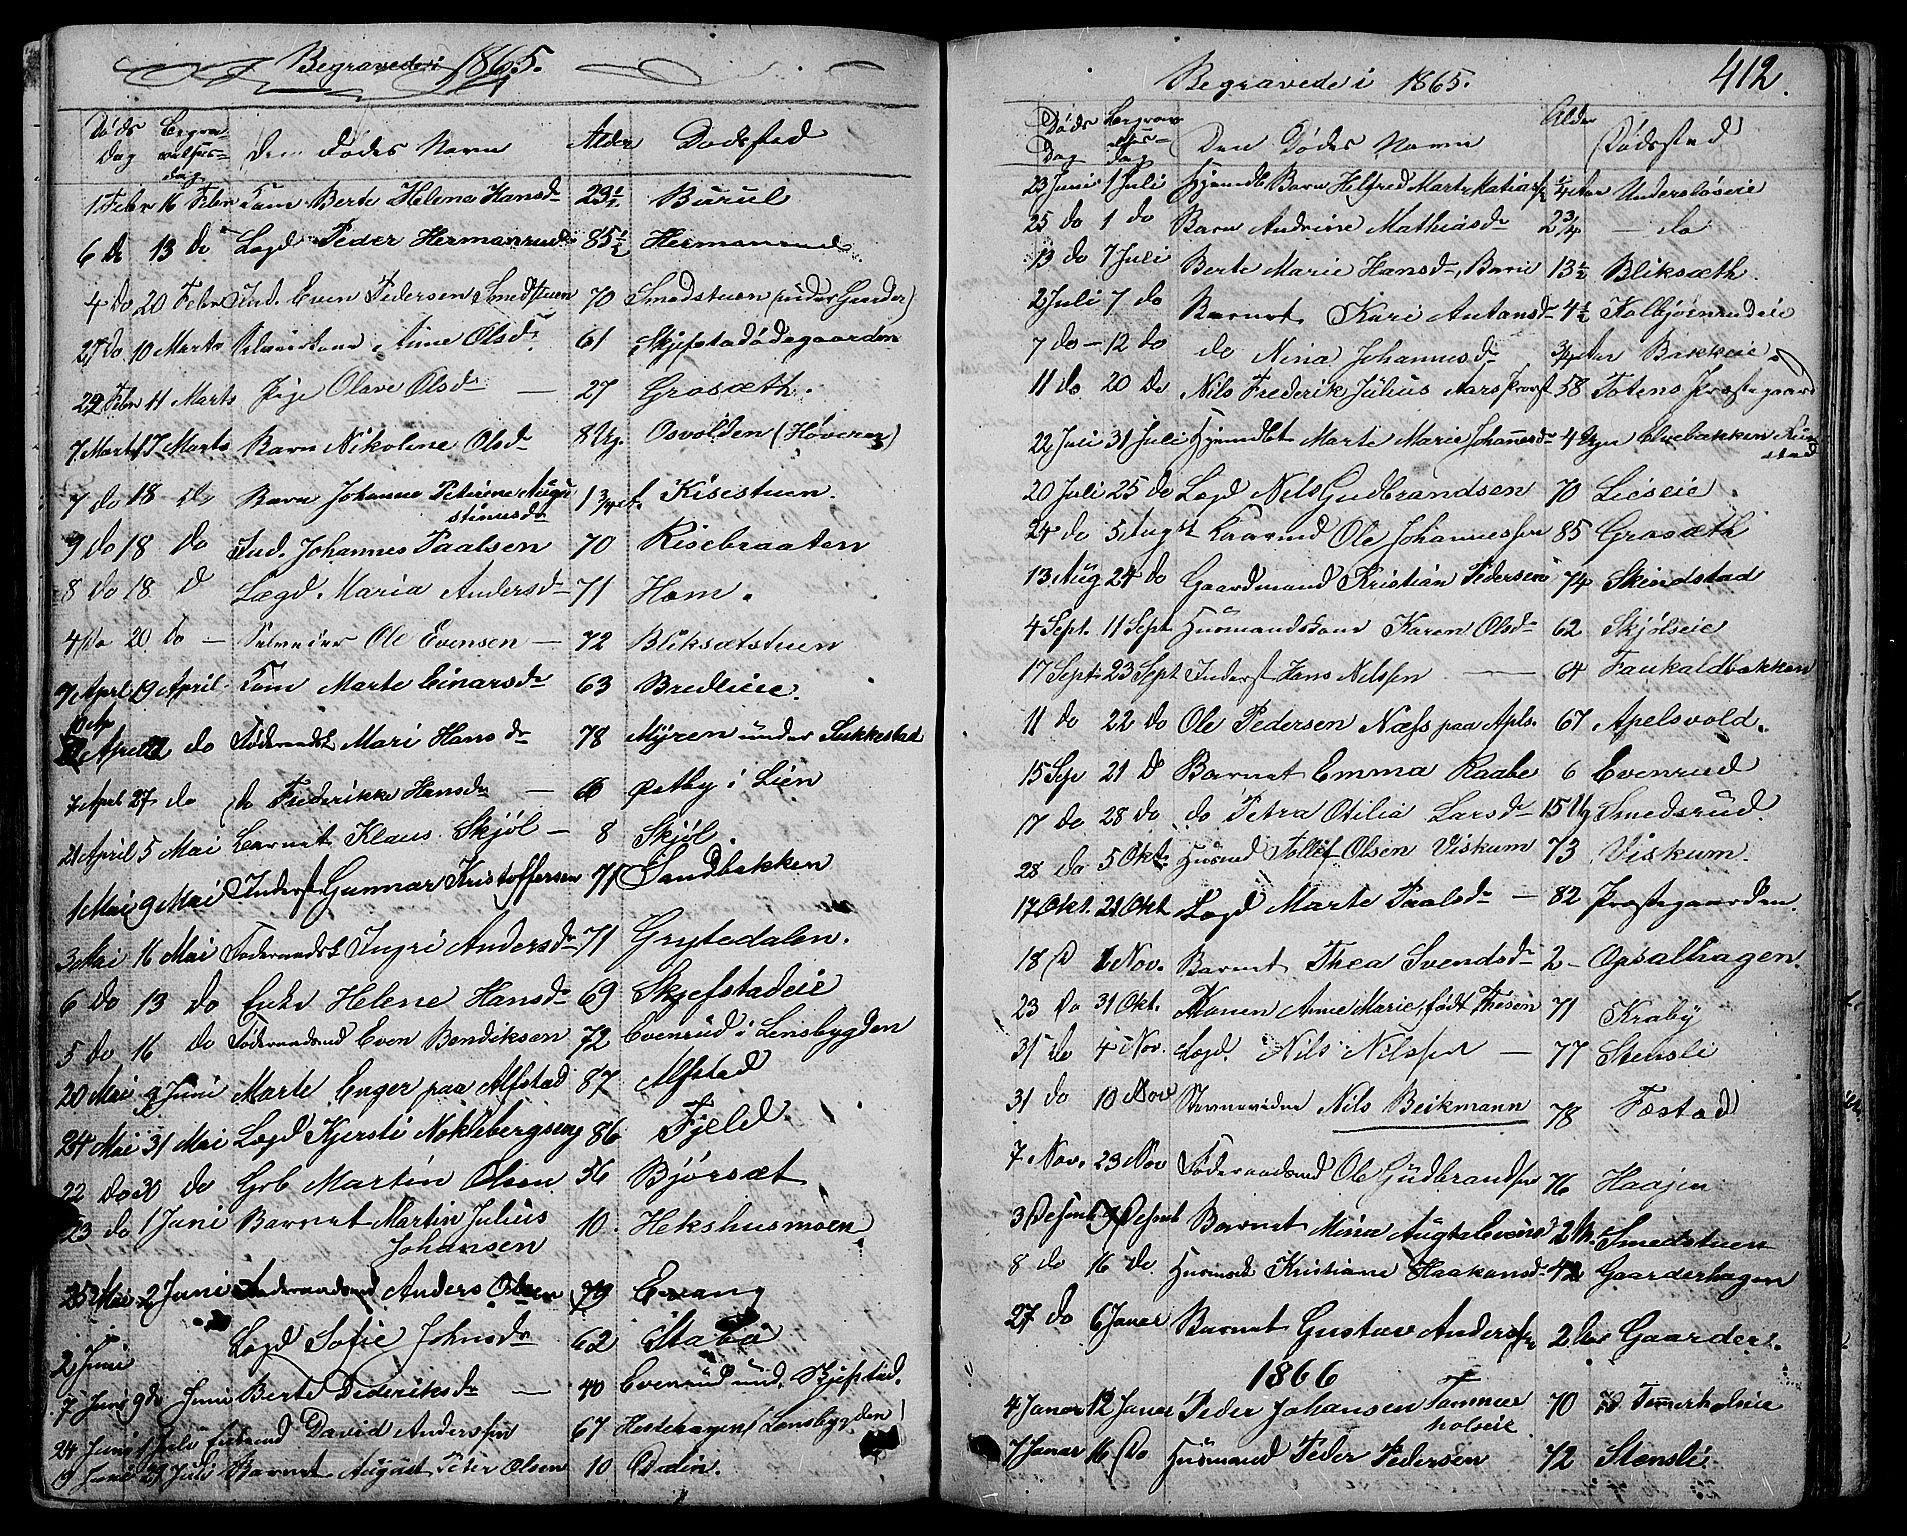 Begravede i 1865.
Døds Dag Begravelses-dag Den Dødes Navn Alder Dødssted
1 Febr 16 Febr Kone Berte Helena Hansdr 29½ Burul
6 do 13 do Lægd Peder Hermanrud 85½ Hermanrud
4 do 20 Febr Ind. Even Pedersen Smedstuen 70 Smedstuen (under Gaarder)
27 do 10 Marts Anne Olsdr 61 Skjefstadødegaarden
22 Febr 11 Marts Pige Olave Olsdr — 27 Grosæth.
7 Marts 17 Marts Barn Nikoline Olsdr 8 Ug. Osvolden (Høveren)
7 do 18 do Barn Johanne Petrine Augu
stinusdr 1¾ Kisestuen.
9 do 18 do Ind. Johannes Paalsen 70 Risebraaten
8 do 18 d Lægd. Maria Andersdr 71 Hom.
4 do 20 do — Ole Evensen — 72 Bliksætstuen
9 April 19 April. Kone Marte Einarsdr 63 Bredlieie.
10 Ap
22 do Føderaadsk. Mari Hansdr 78 Myren under Sukkestad
7 April 27 do do Frederikke Hansdr — Østby i Lien
21 April 5 Mai Barnet Klaus Skjøl — 8 Skjøl.
1 Mai 9 Mai Inderst Gunnar Kristoffersen 71 Sandbakken
3 Mai 16 Mai Føderaadsk Ingri Andersdr 71 Grytedalen.
6 do 13 do Enke Helene Hansdr 69 Skjefstadeie
5 do 16 do Føderaadsmd Even Bendiksen 72 Evenrud i Lensbygden
20 Mai 9 Juni Marte Enger paa Alfstad 87 Alfstad
24 Mai 31 Mai Lægd Kjersti Noklebergseng 86 Fjeld.
22 do 30 do Grb Martin Olsen 56 Bjørsæt
23 do 1 Juni Barnet Martin Julius
Johansen 10. Hekshusmoen
25 Mai 2 Juni Føderaadsmd Anders Olsen 79 Evang
2 Juni Lægd Sofie Johnsdr 62 Stabo
7 Juni 9de Juni Berte Dideriksdr — 40 Evenrud und. Skjefstad.
24 Juni 1 Juli David Anderssen 67 Hestehagen (Lensbygden)
19 Juni Juli Barnet August Peter Olsen 10 Dalin.
412.
Begravede i 1865.
Døds Dag Begravelses-dag Den Dødes Navn Alder Dødssted
23 Juni 1 Juli Hjemdbt Barn Helfred Marte Matias 4 Undersløseie
25 do 1 do Barn Andrine Mathiasdr 2¾ — do
13 do 7 Juli Berte Marie Hansdr, Barn 13½ Bliksæth.
2 Juli 7 do Barnet Kari Antonsdr 4½ Kolbjørnrudeie
7 do — 12 do do Nina Johannesdr ¾ Aar Bakkeie
11 do 20 do Nils Frederik Julius Aars Provst 58 Totens Præstegaard
22 Juli 31 Juli Hjemdbt Marte Marie Johannesdr 4 Uger Elvebakken
20 Juli 25 do Lægd Nils Gudbrandsen 70 Lieseie.
24 do 5 Augst Ole Johannessen 85 Grosæth
13 Aug 24 do Gaardmand Kristian Pedersen 74 Skindstad
4 Sept. 11 Sept Husmandskone Karen Olsdr 62 Skjølseie
17 Sept. 23 Sept Inderst Hans Nilssen — 64 Faukaldbakken
11 do 22 do Ole Pedersen Næss paa Apls. 67 Apelsvold.
15 Sep 21 D Barnet Emma Raabe 6 Evenrud
17 do 28 do do Petra Otilia Larsdr 15 Ug Smedsrud.
28 do 5 Okt. Husmd Tollef Olsen Viskum 73 Viskum.
17 Okt. 21 Okt Lægd Marte Paalsdr — 82 Præstegaarden.
18 D 1 Nov. Barnet Thea Svendsdr 2 — Opsalhagen.
23 do 31 Okt. Konen Anne Marie født Thesen 71 Kraby
31 do 4 Nov. Lægd. Nils Nilssen — 77 Stensli
31 do 10 Nov Nils Beikmann 78 Fæstad
7 Nov. 23 Nov Føderaadsmd Ole Gudbrandsen 76 Haajen
3 Desmb 9 Desmb Barnet Mina Augta Evensd Smedstuen
8 do 16 do Husmsk Kristiane Haakensdr 42 Gaarderhagen
27 do 6 Januar Barnet Gustav Anderssen 2 Gaarder.
1866
4 Januar 12 Januar Peder Johansen Tømmer
holseie 70 Tømmerholseie
7 Januar 16 do Husmand Peder Pedersen 72 Stensli